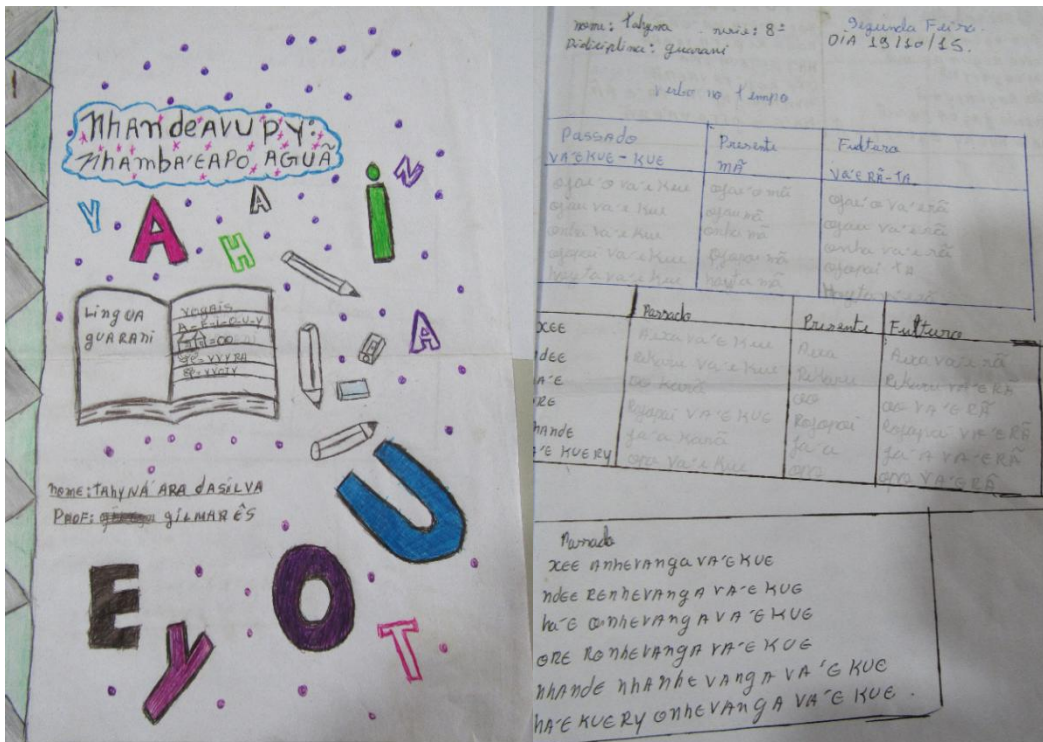 NhANdeAVU PY:
NhAMBA'EAPO AGUÃ
Y A H A i N
LingUA
gUARANi
VOgAis
A-E-I-O-U-Y
A
E Y O U T
nome: TAhyNÁ ARA dASiLVA
PROF: giLMARÊS
nome: Tahyna serie: 8ª
Didiciplina: guarani
Segunda Feira.
DIA 19/10/15.
Verbo no tempo
Passado Presente Fultura
VA'EKUE - KUE MÃ VA'ERÃ-TA
ojae'o va'e kue ojae'o mã ojae'o va'erã
ojau va'e kue ojau mã ojau va'erã
onha va'e kue onha mã onha va'erã
ojapai mã ojapai TA
hayta va'e kue hayta mã
Passado Presente Fultura
XEE Axa va'e kue Axa Axa va'e rã
dEE Rekaru va'e kue Rekaru Rekaru VA'ERÃ
A'E oo karã oo oo VA'ERÃ
RE Rojapai VA'EKUE Rojapai Rojapai VA'ERÃ
hANdE ja'a karã ja'a ja'A VA'ERÃ
A'E KUERY opo va'e kue opo opo VA'ERÃ
Passado
XEE ANhEVANgA VA'E KUE
NdEE RENhEVANgA VA'E KUE
ha'E ONhEVANgA VA'E KUE
ORE RONhEVANgA VA'E KUE
NhANdE NhANhEVANgA VA'E KUE
hA'E KUERY ONhEVANgA VA'E KUE.